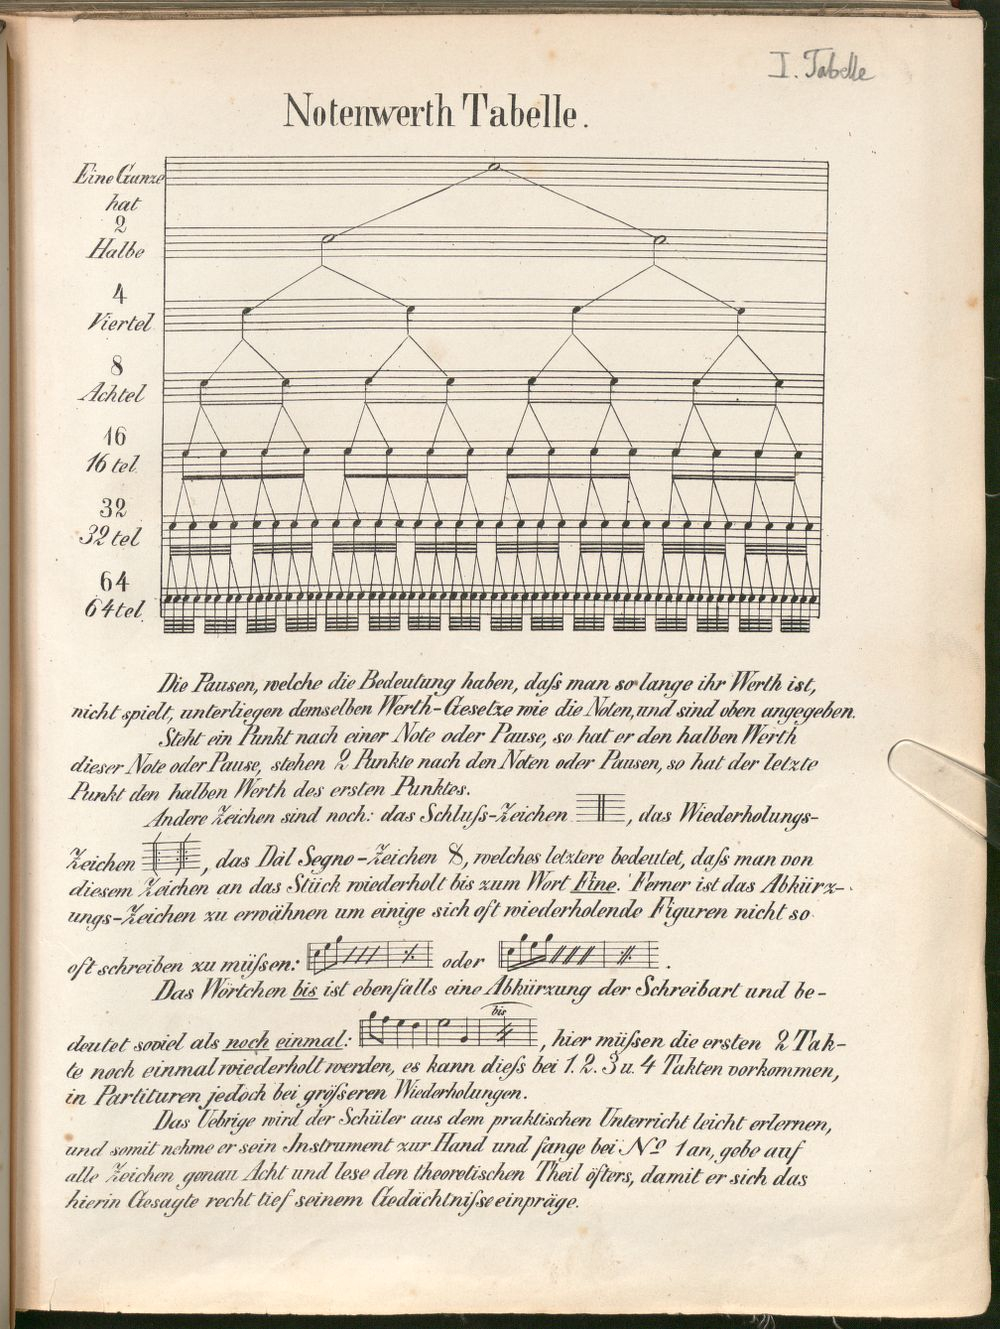 I. Tabelle
Notenwerth Tabelle.
Eine Ganze
hat
2
Halbe
4
Viertel
8
Achtel
16
16tel
32
32tel
64
64tel
Die Pausen, welche die Bedeutung haben, daſs man so lange ihr Werth ist,
nicht spielt, unterliegen demselben Werth-Gesetze wie die Noten, und sind oben angegeben.
Steht ein Punkt nach einer Note oder Pause, so hat er den halben Werth
dieser Note oder Pause, stehen 2 Punkte nach den Noten oder Pausen, so hat der letzte
Punkt den halben Werth des ersten Punktes.
Andere Zeichen sind noch: das Schluſs-Zeichen , das Wiederholungs-
Zeichen , das Dàl Segno-Zeichen 𝄋, welches letztere bedeutet, daſs man von
diesem Zeichen an das Stück wiederholt bis zum Wort Fine. Ferner ist das Abkürz-
ungs-Zeichen zu erwähnen um einige sich oft wiederholende Figuren nicht so
oft schreiben zu müſsen: oder .
Das Wörtchen bis ist ebenfalls eine Abkürzung der Schreibart und be-
bis
deutet soviel als noch einmal: , hier müſsen die ersten 2 Tak-
te noch einmal wiederholt werden, es kann dieſs bei 1. 2. 3 u. 4 Takten vorkommen,
in Partituren jedoch bei gröſseren Wiederholungen.
Das Uebrige wird der Schüler aus dem praktischen Unterricht leicht erlernen,
und somit nehme er sein Instrument zur Hand und fange bei No 1 an, gebe auf
alle Zeichen genau Acht und lese den theoretischen Theil öfters, damit er sich das
hierin Gesagte recht tief seinem Gedächtniſse einpräge.